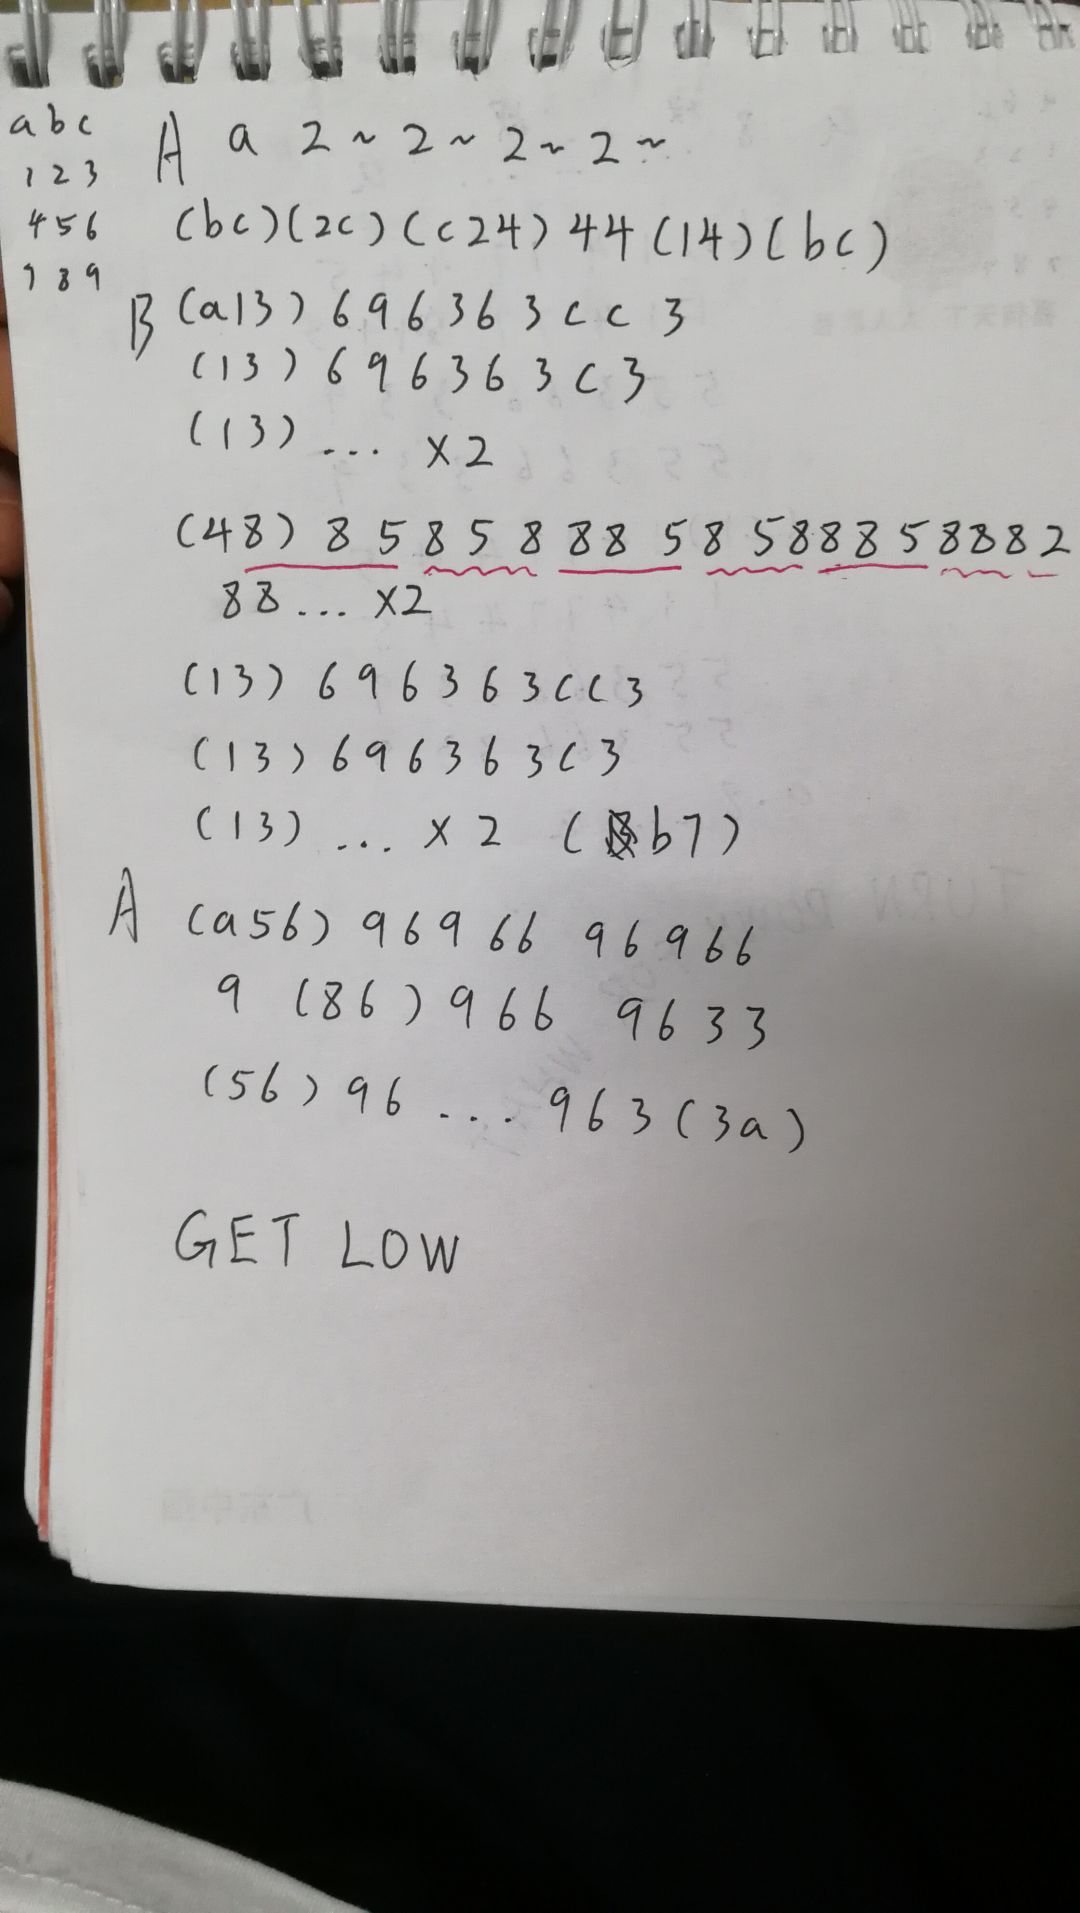 abc
123
456
789
A a 2~2~2~2~
(bc)(2c)(c24)44(14)(bc)
B (a13)696363cc3
(13)696363c3
(13)... x2
(48)858588858588858882
88... x2
(13)696363cc3
(13)696363c3
(13)... x2 (b7)
A (a56)96966 96966
9 (86)966 9633
(56)96...963(3a)
GET LOW